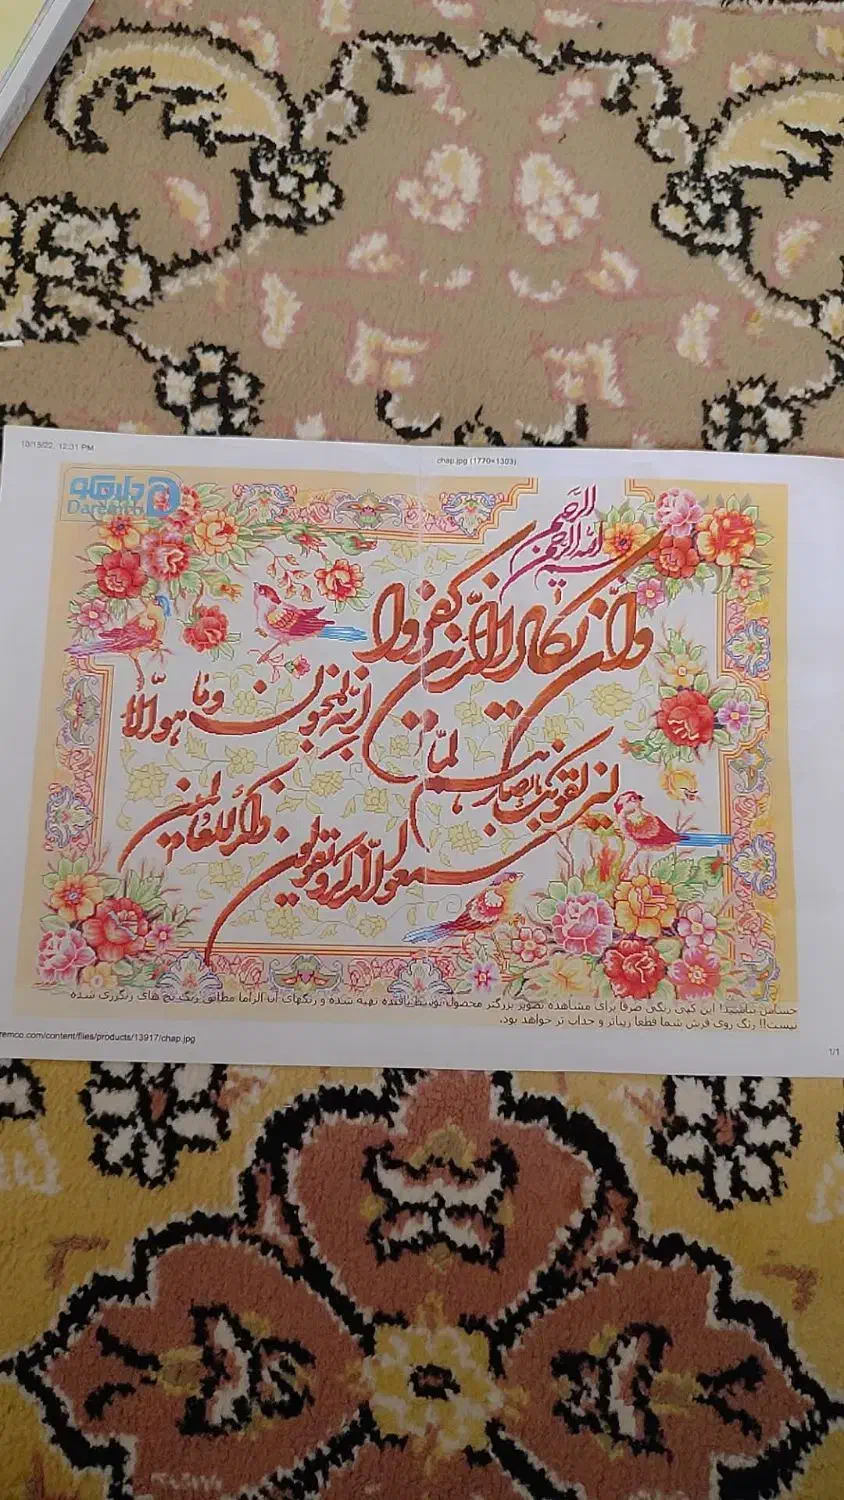 10/15/22, 12:31 PM
chap.jpg (1770×1303)
دارمکو
Daremco
بسم الله الرحمن الرحیم
وان یکاد الذین کفروا
لیزلقونک بابصارهم لما
سمعوا الذکر و یقولون
انه لمجنون وما هو الا
ذکر للعالمین
حساس نباشید! این کپی رنگی صرفا برای مشاهده تصویر بزرگتر محصول توسط بافنده تهیه شده و رنگهای آن الزاما مطابق رنگ نخ های رنگرزی شده
نیست!! رنگ روی فرش شما قطعا زیباتر و جذاب تر خواهد بود.
remco.com/content/files/products/13917/chap.jpg
1/1